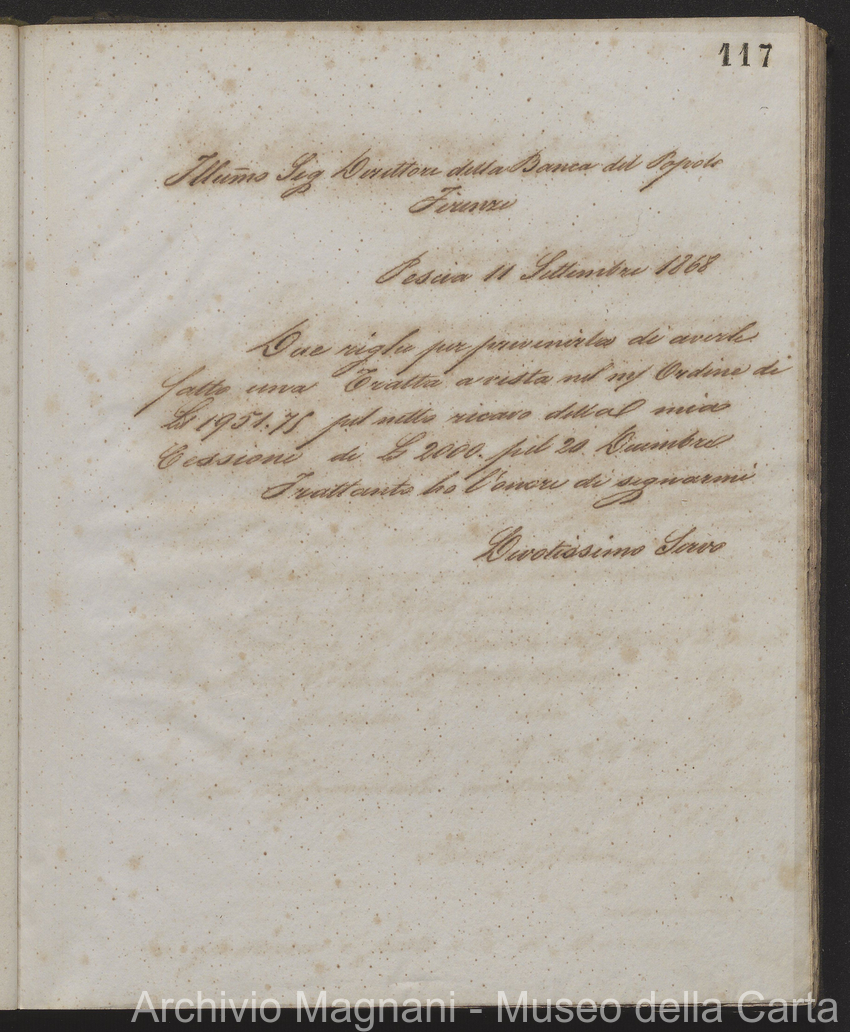 117
Illum̃o Sig Direttore della Banca del Popolo
Firenze
Pescia 11 Settembre 1868
Due righe per prevenirla di averle
fatto una Tratta a vista nel m/ Ordine di
L 1951.75 pel netto ricavo della mia
Cessione de L 2000. pel 20 Dicembre
Trattanto ho l'onore di segnarmi
Divotissimo Servo
Archivio Magnani - Museo della Carta